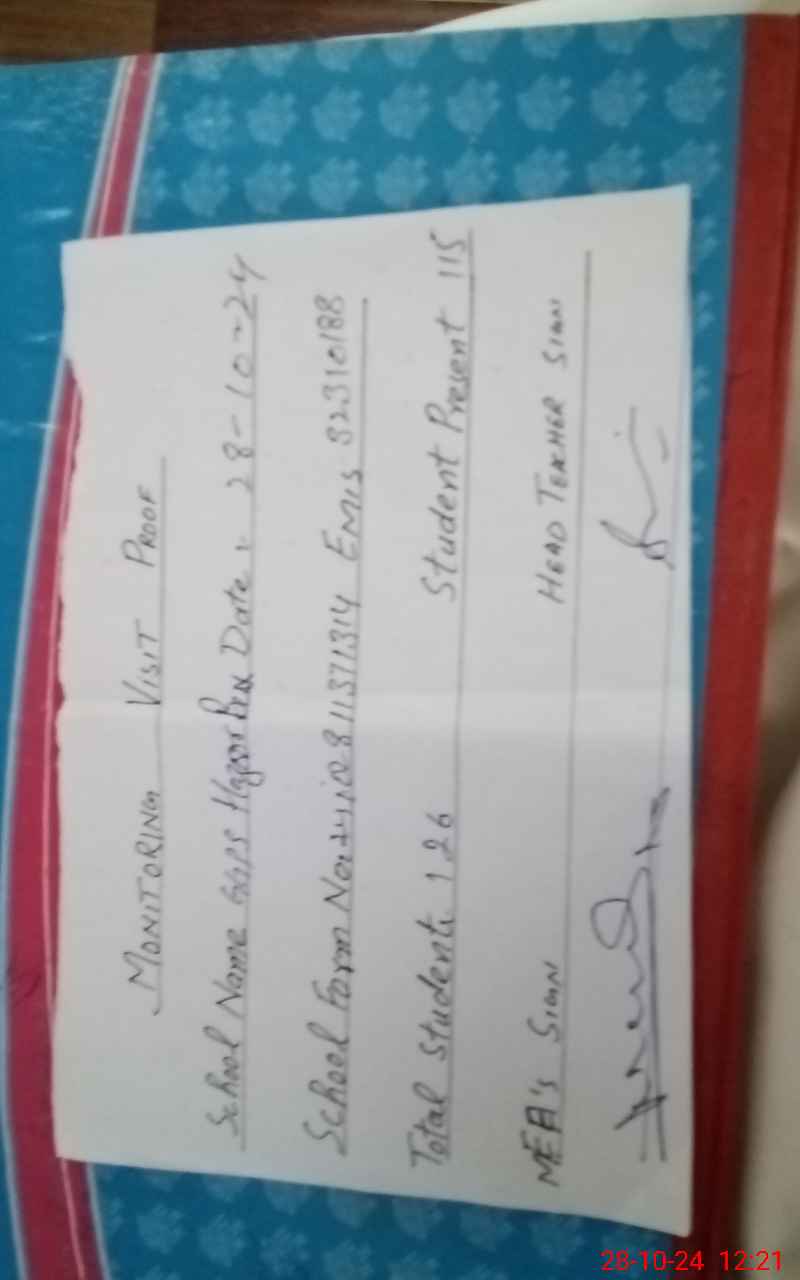 MONITORING VISIT PROOF
School Name GGPS Date: 28-10-24
School Form No. EMIS 32310188
Total Student: 126 Student Present 115
MEA's SIGN HEAD TEACHER SIGN
28-10-24 12:21